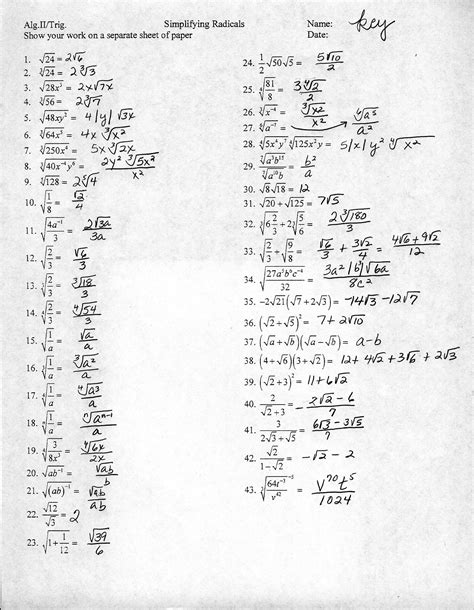 Alg.II/Trig. Simplifying Radicals Name: key
Show your work on a separate sheet of paper Date:
1. √24 = 2√6
2. ∛24 = 2∛3
3. √28x³ = 2x√7x
4. ∛56 = 2∛7
5. √48xy² = 4|y|√3x
6. ∛64x⁵ = 4x∛x²
7. ∛250x⁴ = 5x∛2x
8. ∛40x⁻⁴y⁶ = 2y²∛5x²/x²
9. ∛128 = 2∜4
10. √(1/8) = √2/4
11. √(4a⁻¹/3) = 2√3a/3a
12. √(2/3) = √6/3
13. ∛(2/3) = ∛18/3
14. ∜(2/3) = ∜54/3
15. √(1/a) = √a/a
16. ∛(1/a) = ∛a²/a
17. ∜(1/a) = ∜a³/a
18. ⁿ√(1/a) = ⁿ√aⁿ⁻¹/a
19. ∜(3/8x³) = ∜6x/2x
20. √ab⁻¹ = √ab/b
21. √(ab)⁻¹ = √ab/ab
22. √12/√3 = 2
23. √(1+1/12) = √39/6
24. (1/2)√50√5 = 5√10/2
25. ∜(81/8) = 3∜2/2
26. ∛x⁻⁴ = ∛x²/x²
27. a⁻⁷ = a⁵/a²
28. ∜5x⁴y⁷ ∜125x³y = 5|x|y²∜x³
29. a³b¹⁵/a¹⁰b = b²/a
30. √8√18 = 12
31. √20 + √125 = 7√5
32. ∛6(2/3) + 2∛(5/6) = 2∛180/3
33. √(2/3) + √(9/8) = √6/3 + 3√2/4 = 4√6+9√2/12
34. √(27a⁵b²c⁻⁴/32) = 3a²|b|√6a/8c²
35. -2√21(√7 + 2√3) = -14√3 -12√7
36. (√2 + √5)² = 7 + 2√10
37. (√a + √b)(√a − √b) = a-b
38. (4 + √6)(3 + √2) = 12 + 4√2 + 3√6 + 2√3
39. (√2 + 3)² = 11 + 6√2
40. 2/(√2+3) = - 2√2 - 6/7
41. 3/(2√3+√5) = 6√3 - 3√5/7
42. √2/(1−√2) = -√2 - 2
43. v⁷⁰t⁵/1024